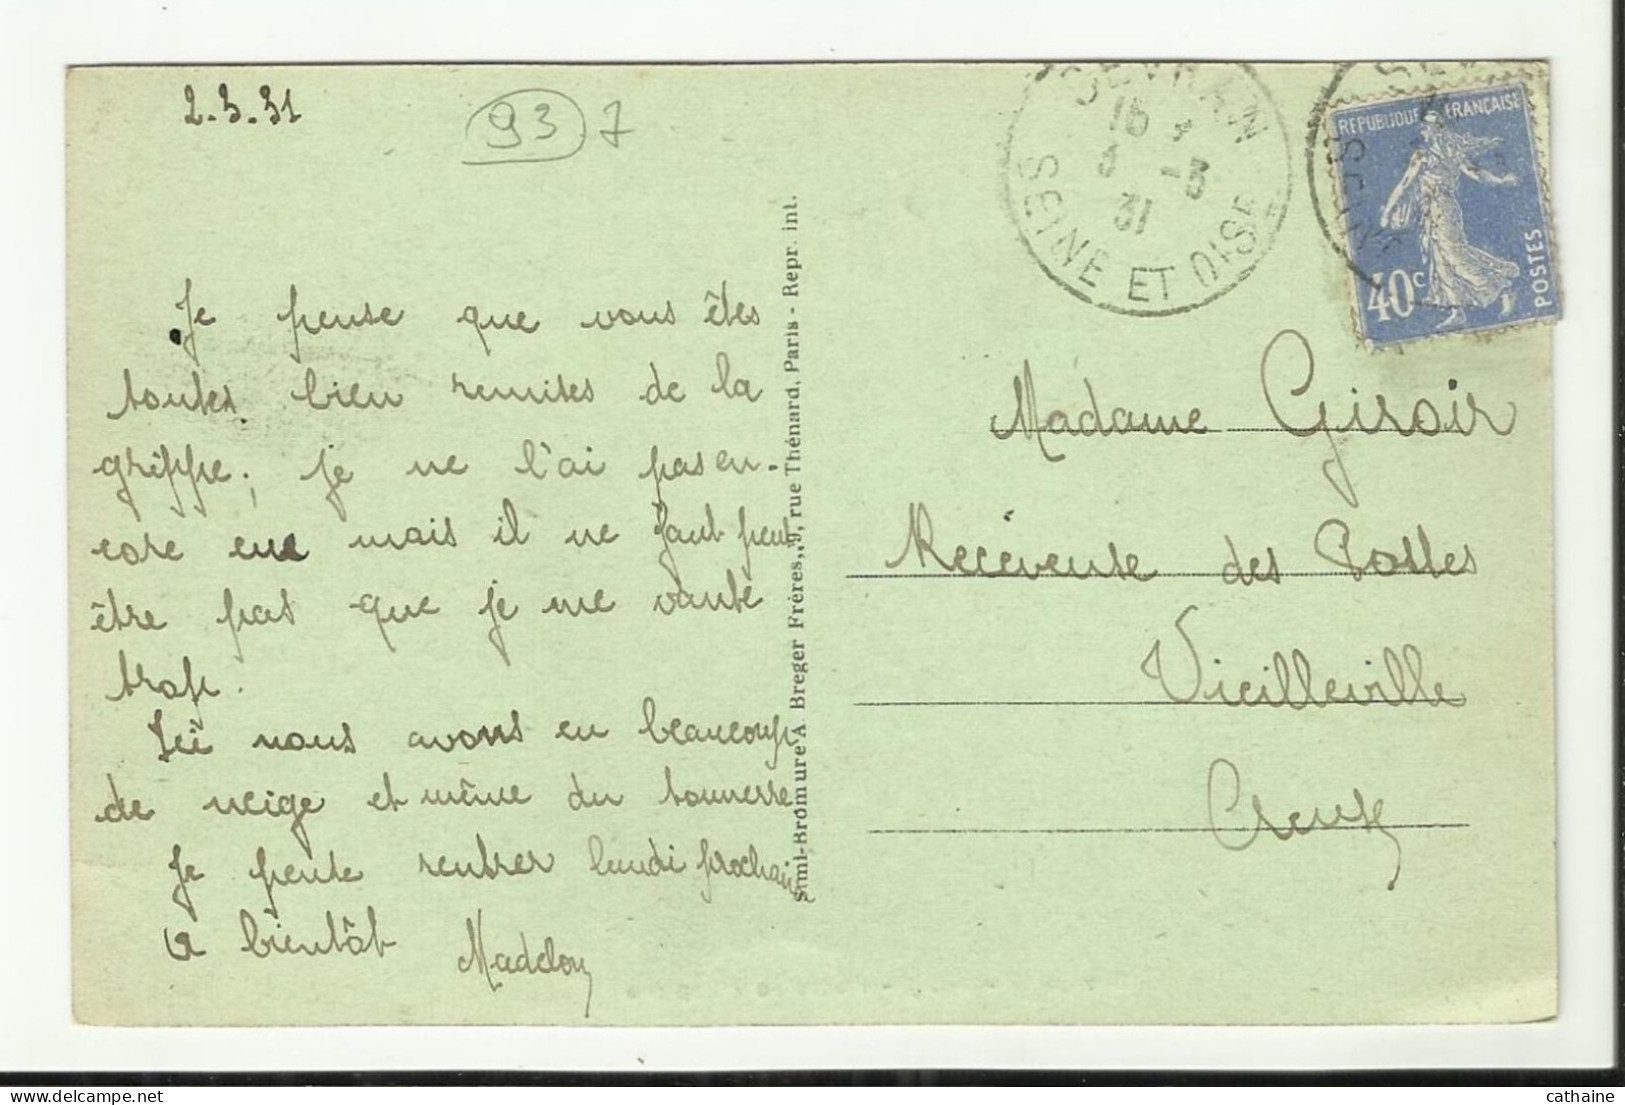 2.3.31
93 7
Je pense que vous êtes
toutes bien remises de la
grippe; je ne l'ai pas en-
core eue mais il ne faut peut
être pas que je me vante
trop.
Ici nous avons eu beaucoup
de neige et même du tonnerre
Je pense rentrer lundi prochain
A bientôt Madelon
Simi-Bromure A. Breger Frères, 9, rue Thénard, Paris - Repr. int.
SEVRAN
16
5 -3
31
SEINE ET OISE
REPUBLIQUE FRANÇAISE
40c
POSTES
Madame Giroir
Receveuse des Postes
Vieilleville
Creuse
cathaine